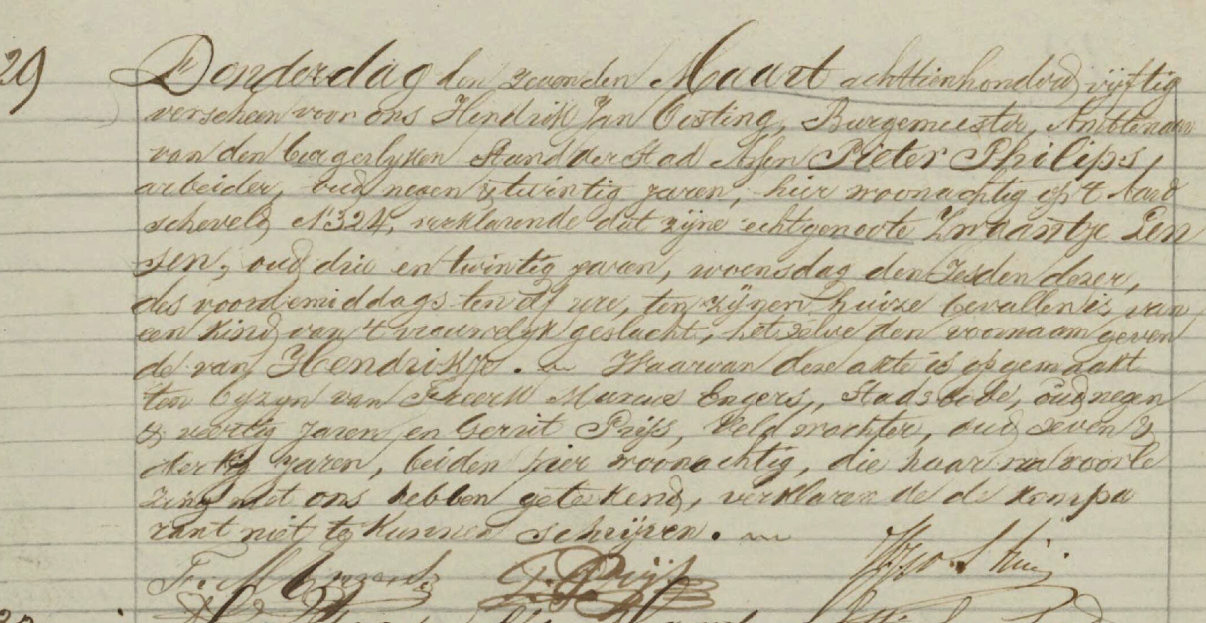 29
Donderdag den zevenden Maart achttienhonderd vijftig
verscheen voor ons Hendrik Jan Oosting, Burgemeester, Ambtenaar
van den burgerlyken Stand der Stad Assen Pieter Philips,
arbeider, oud negen & twintig jaren, hier woonachtig op 't Aard
scheveld N 324, verklarende dat zijne echtgenoote Zwaantje Jen
sen, oud drie en twintig jaren, woensdag den zesden dezer,
des voordemiddags ten elf ure, ten zijnen huize bevallen is, van
een kind van 't vrouwelyk geslacht, hetzelve den voornaam geven
de van Hendrikje. Waarvan deze akte is opgemaakt
ten byzyn van Freerk Engers, Stadsbode, oud negen
& veertig jaren en Gerrit Prijs, Veldwachter, oud zeven &
dertig jaren, beiden hier woonachtig, die haar na voorle
zing met ons hebben geteekend, verklarende de kompa
rant niet te kunnen schrijven.